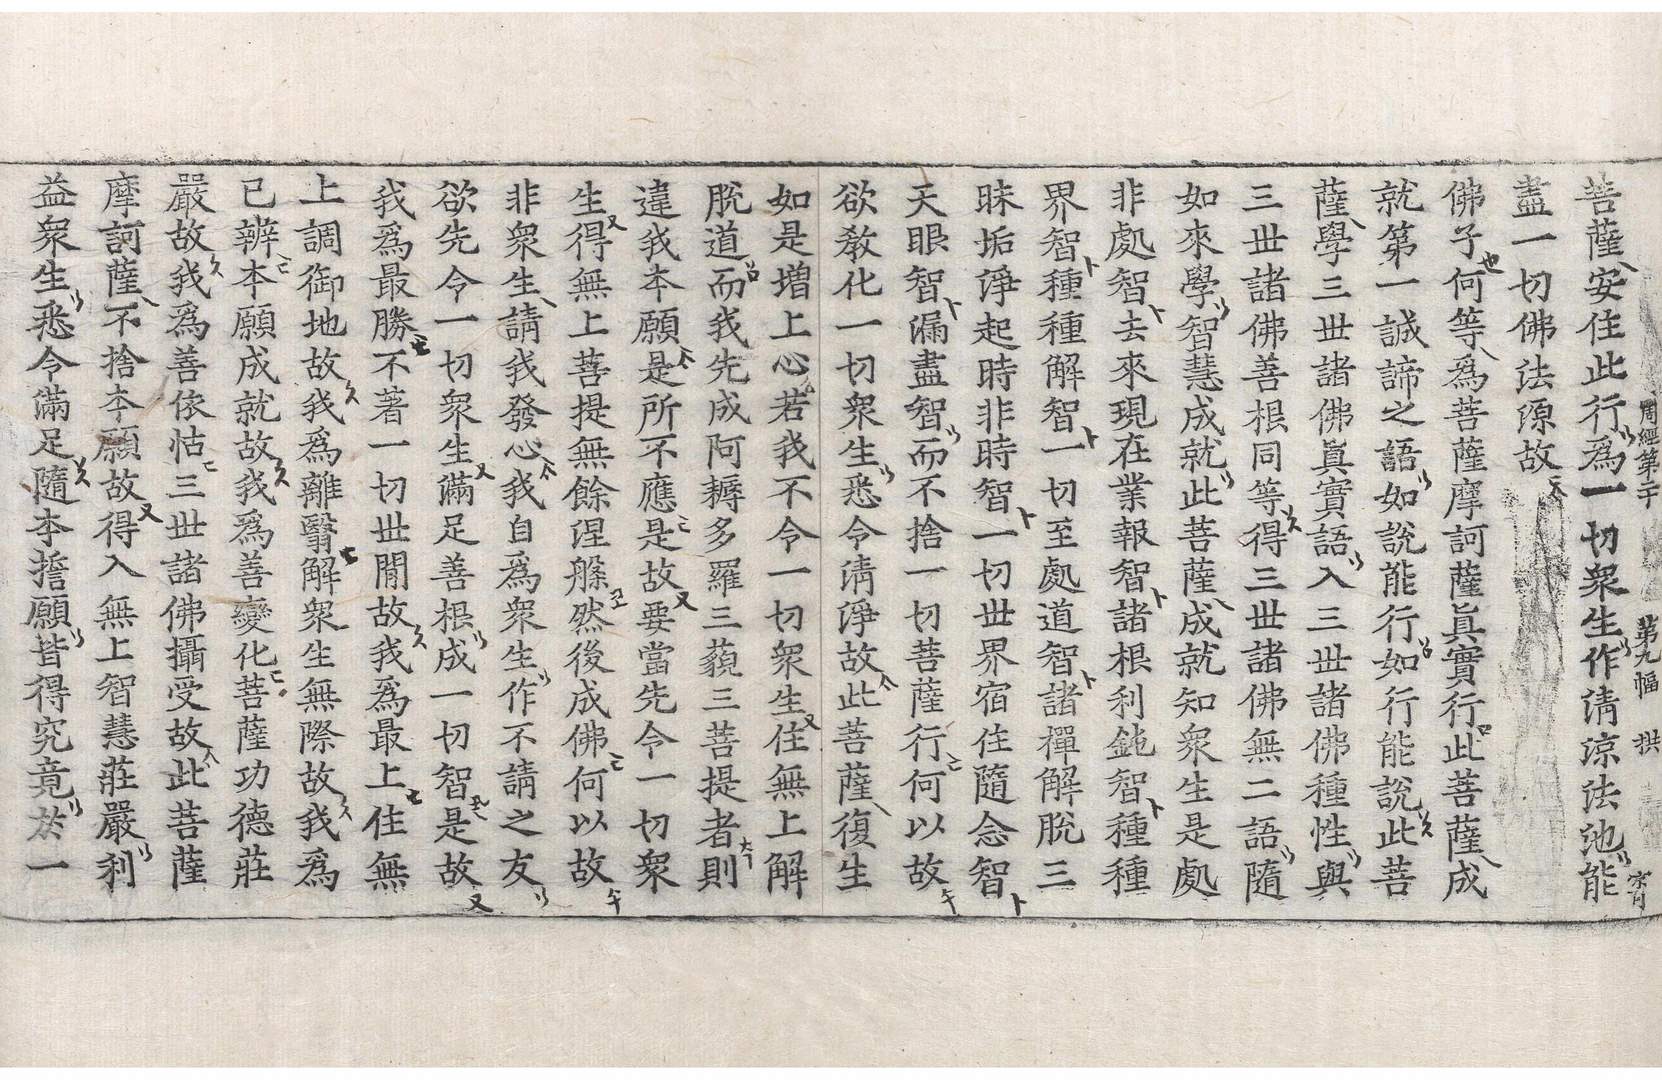 周經第二十 第九幅 拱
菩薩安住此行爲一切衆生作清涼法池能
盡一切佛法源故
佛子何等爲菩薩摩訶薩眞實行此菩薩成
就第一誠諦之語如說能行如行能說此菩
薩學三世諸佛眞實語入三世諸佛種性與
三世諸佛善根同等得三世諸佛無二語隨
如來學智慧成就此菩薩成就知衆生是處
非處智去來現在業報智諸根利鈍智種種
界智種種解智一切至處道智諸禪解脫三
昧垢淨起時非時智一切世界宿住隨念智
天眼智漏盡智而不捨一切菩薩行何以故
欲敎化一切衆生悉令淸淨故此菩薩復生
如是增上心若我不令一切衆生住無上解
脫道而我先成阿耨多羅三藐三菩提者則
違我本願是所不應是故要當先令一切衆
生得無上菩提無餘涅槃然後成佛何以故
非衆生請我發心我自爲衆生作不請之友
欲先令一切衆生滿足善根成一切智是故
我爲最勝不著一切世閒故我爲最上住無
上調御地故我爲離翳解衆生無際故我爲
已辨本願成就故我爲善變化菩薩功德莊
嚴故我爲善依怙三世諸佛攝受故此菩薩
摩訶薩不捨本願故得入無上智慧莊嚴利
益衆生悉令滿足隨本誓願皆得究竟於一